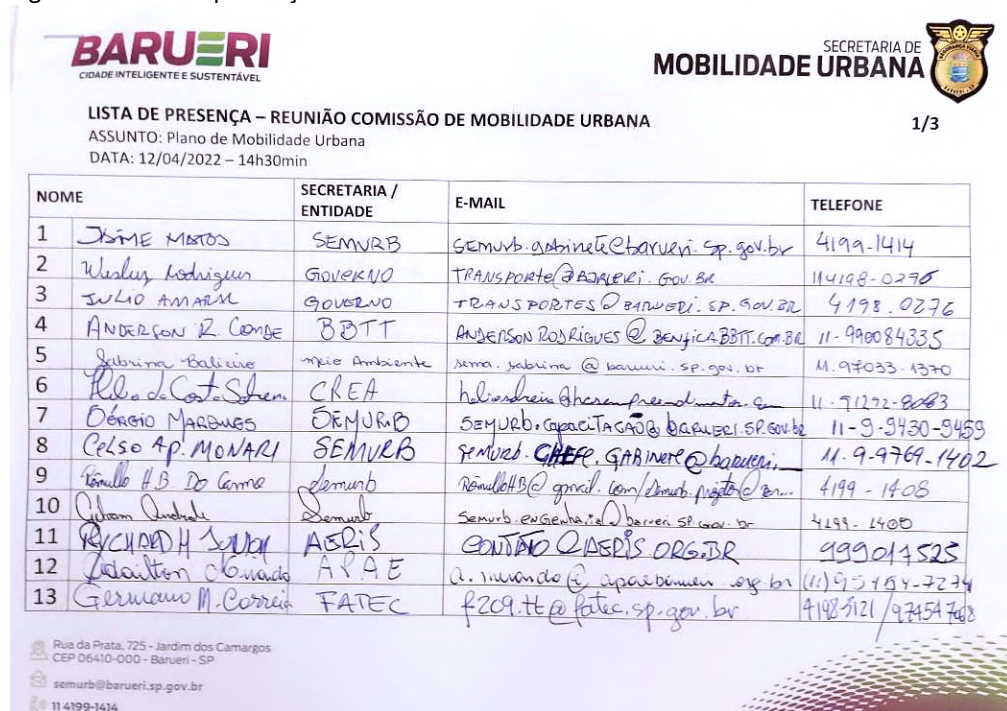 BARUERI
CIDADE INTELIGENTE E SUSTENTÁVEL
SECRETARIA DE
MOBILIDADE URBANA
LISTA DE PRESENÇA – REUNIÃO COMISSÃO DE MOBILIDADE URBANA
1/3
ASSUNTO: Plano de Mobilidade Urbana
DATA: 12/04/2022 – 14h30min
NOME SECRETARIA / ENTIDADE E-MAIL TELEFONE
1 JAIME MATOS SEMURB semurb.gabinete@barueri.sp.gov.br 4199-1414
2 Wesley Rodrigues GOVERNO TRANSPORTE@BARUERI.GOV.BR 114198-0276
3 JULIO AMARAL GOVERNO TRANSPORTES@BARUERI.SP.GOV.BR 4198.0276
4 ANDERSON R. CONDE BBTT ANDERSON RODRIGUES@BENFICABBTT.COM.BR 11-990084335
5 Sabrina meio Ambiente sema.sabrina@barueri.sp.gov.br 11.97033-1370
6 CREA 11-91292-8083
7 SÉRGIO MARQUES SEMURB SEMURB.CAPACITAÇÃO@BARUERI.SP.GOV.BR 11-9-9430-9459
8 CELSO AP. MONARI SEMURB SEMURB.CHEFE.GABINETE@barueri. 11.9-9769-1402
9 Rômullo H.B. Do Carmo Semurb RômulloHB@gmail.com/ 4199-1408
10 Andrade Semurb semurb.engenharia@barueri.sp.gov.br 4199-1400
11 RYCHARD H AERIS @AERIS.ORG.BR 999017525
12 APAE (11)95154-7274
13 Germano M. Correia FATEC f209.tt@fatec.sp.gov.br 4198-3121/974547668
Rua da Prata, 725 - Jardim dos Camargos
CEP 06410-000 - Barueri - SP
semurb@barueri.sp.gov.br
11 4199-1414